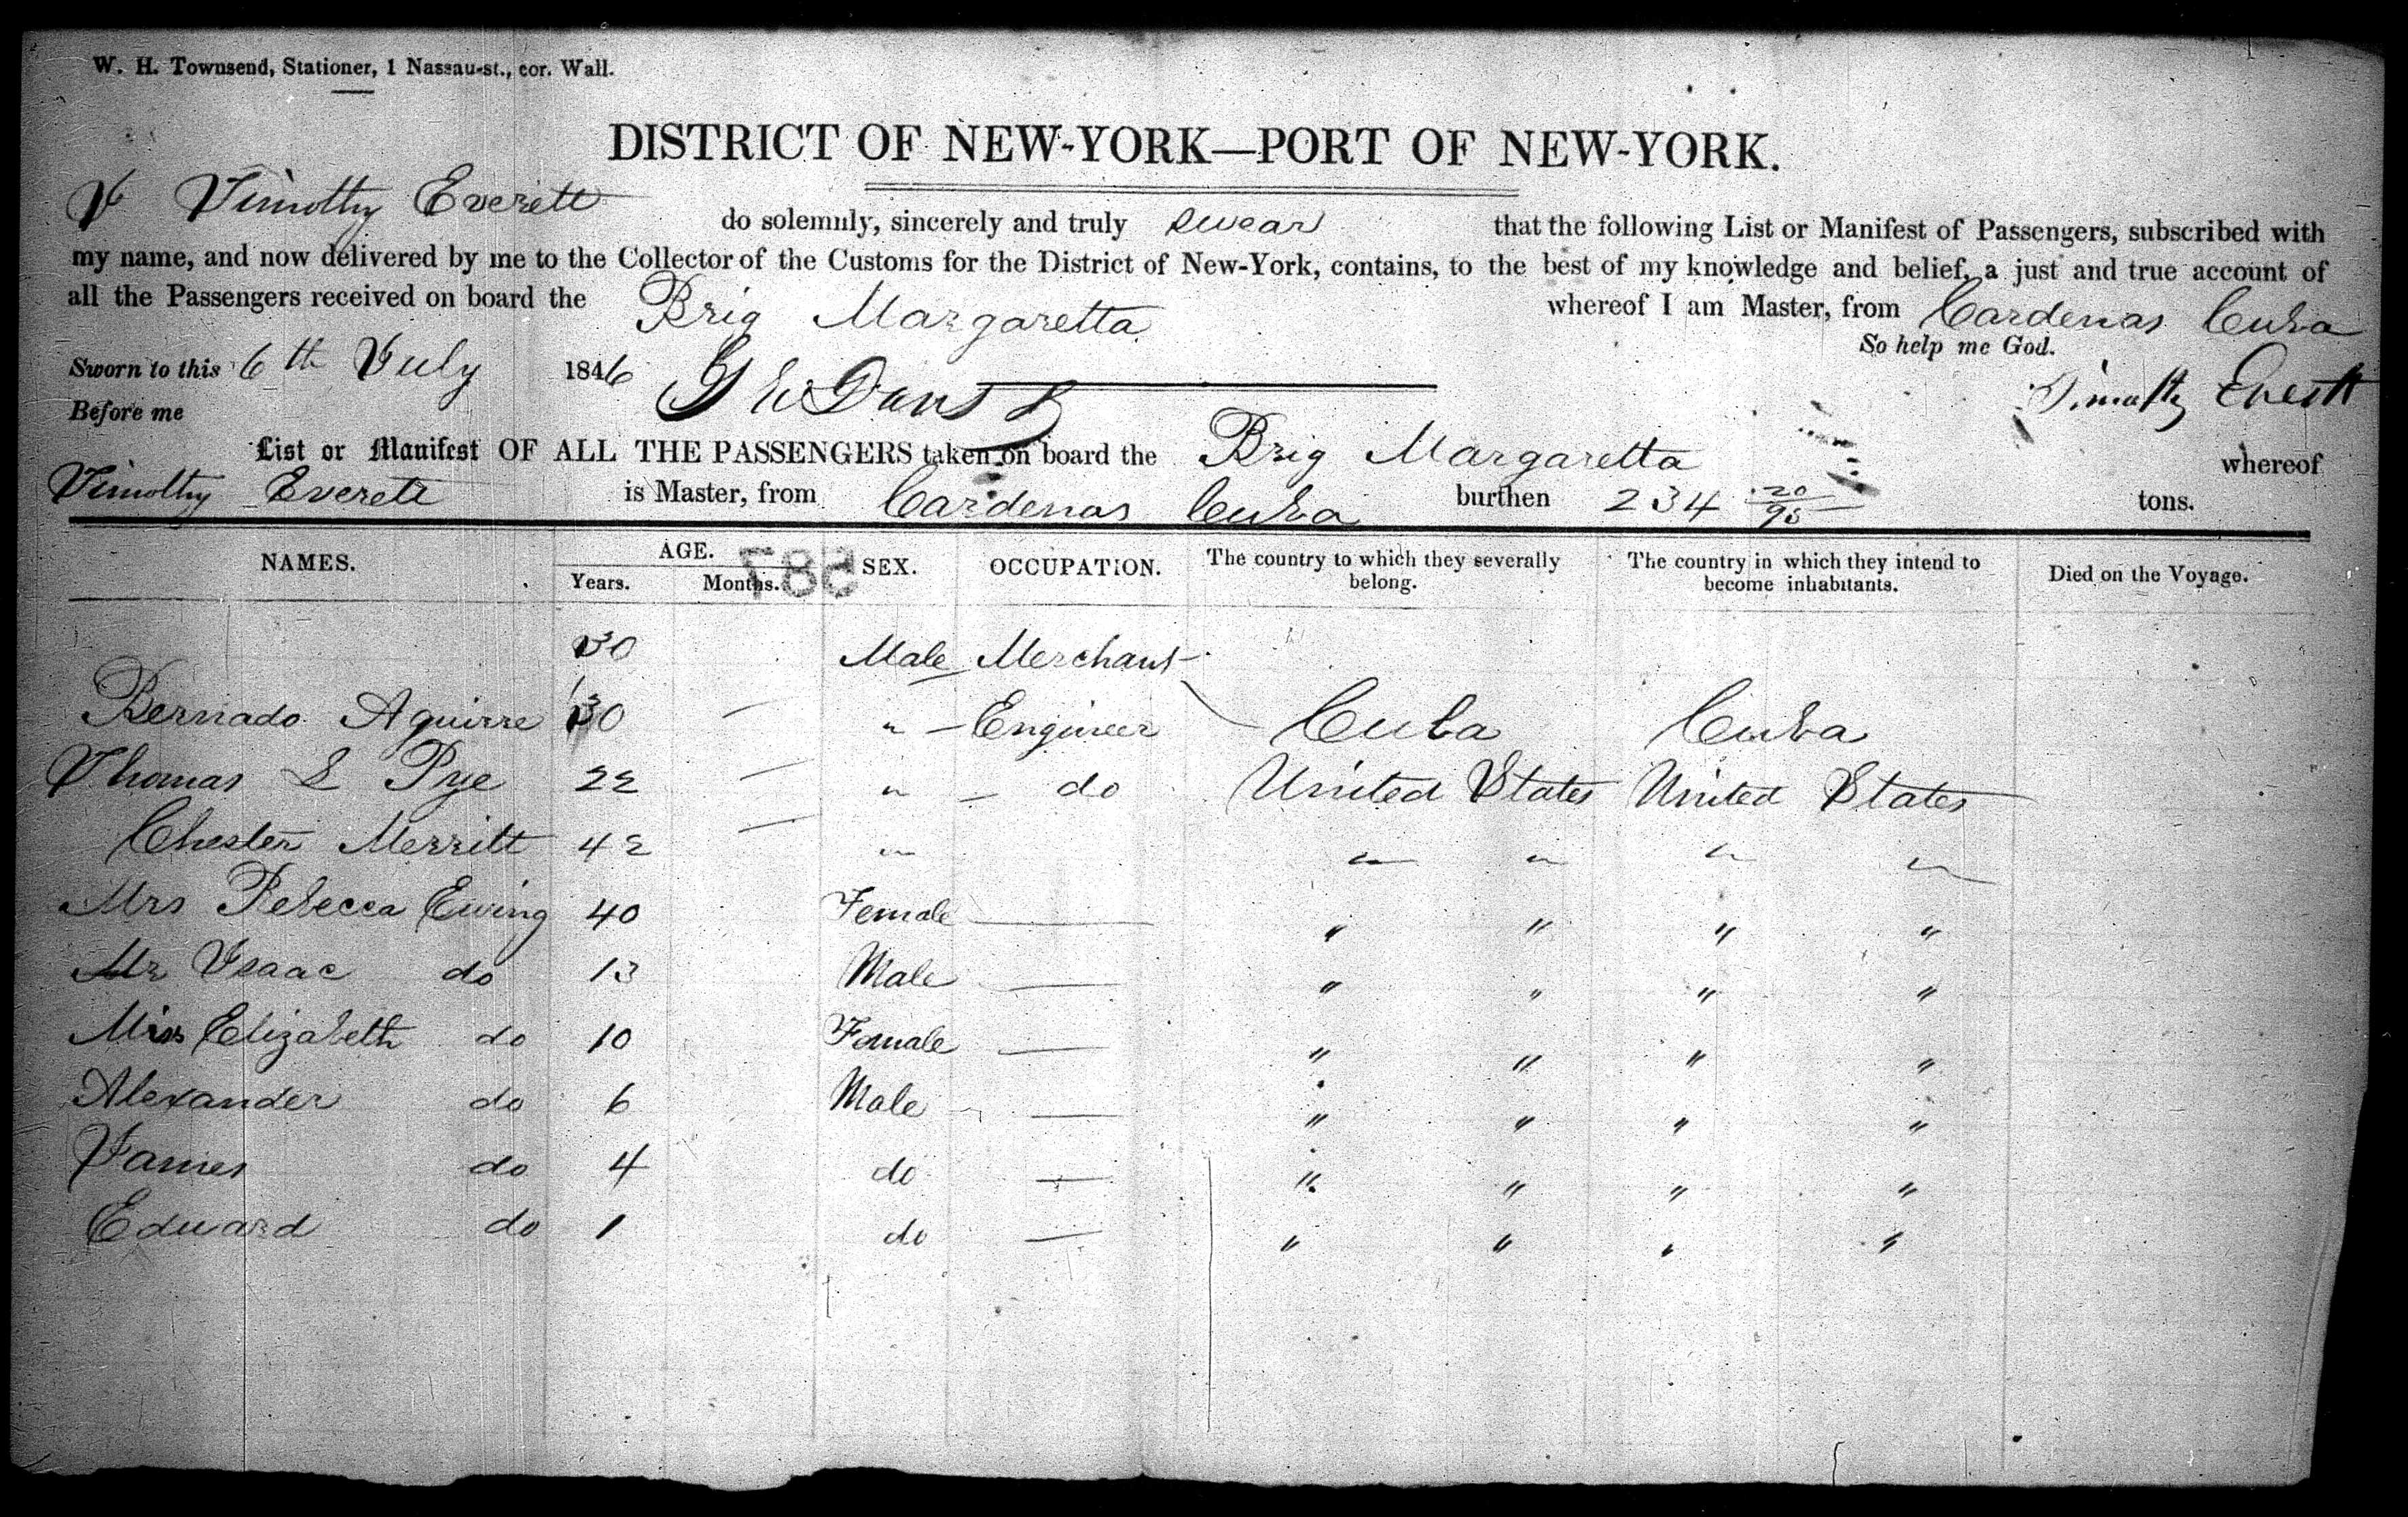 W. H. Townsend, Stationer, 1 Nassau-st., cor. Wall.
DISTRICT OF NEW-YORK—PORT OF NEW-YORK.
I Timothy Everett do solemnly, sincerely and truly swear that the following List or Manifest of Passengers, subscribed with
my name, and now delivered by me to the Collector of the Customs for the District of New-York, contains, to the best of my knowledge and belief, a just and true account of
all the Passengers received on board the Brig Margaretta whereof I am Master, from Cardenas Cuba
So help me God.
Sworn to this 6th July 1846 Timothy Everett
Before me
List or Manifest OF ALL THE PASSENGERS taken on board the Brig Margaretta whereof
Timothy Everett is Master, from Cardenas Cuba burthen 234 20/95 tons.
NAMES. AGE. Years. Months. 587 SEX. OCCUPATION. The country to which they severally belong. The country in which they intend to become inhabitants. Died on the Voyage.
30 Male Merchant
Bernado Aguirre 30 — " — Engineer Cuba Cuba
Thomas S Pye 22 — " — do United States United States
Chester Merritt 42 — " " " " "
Mrs Rebecca Ewing 40 Female — " " " "
Mr Isaac do 13 Male — " " " "
Miss Elizabeth do 10 Female — " " " "
Alexander do 6 Male — " " " "
James do 4 do — " " " "
Edward do 1 do — " " " "